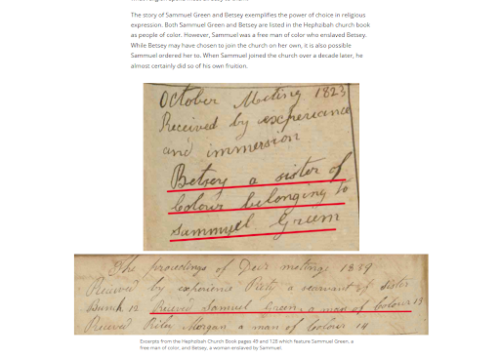 The story of Sammuel Green and Betsey exemplifies the power of choice in religious
expression. Both Sammuel Green and Betsey are listed in the Hephzibah church book
as people of color. However, Sammuel was a free man of color who enslaved Betsey.
While Betsey may have chosen to join the church on her own, it is also possible
Sammuel ordered her to. When Sammuel joined the church over a decade later, he
almost certainly did so of his own fruition.
October Meting 1823
Received by experiance
and immersion
Betsey a sister of
Colour belonging to
Sammuel Green
The proceedings of Decr meeting 1839
Received by experience a servant of sister
Bunch 12 Recieved Samuel Green a man of Colour 13
Received Morgan a man of Colour 14
Excerpts from the Hephzibah Church Book pages 49 and 129 which feature Sammuel Green, a
free man of color, and Betsey, a woman enslaved by Sammuel.